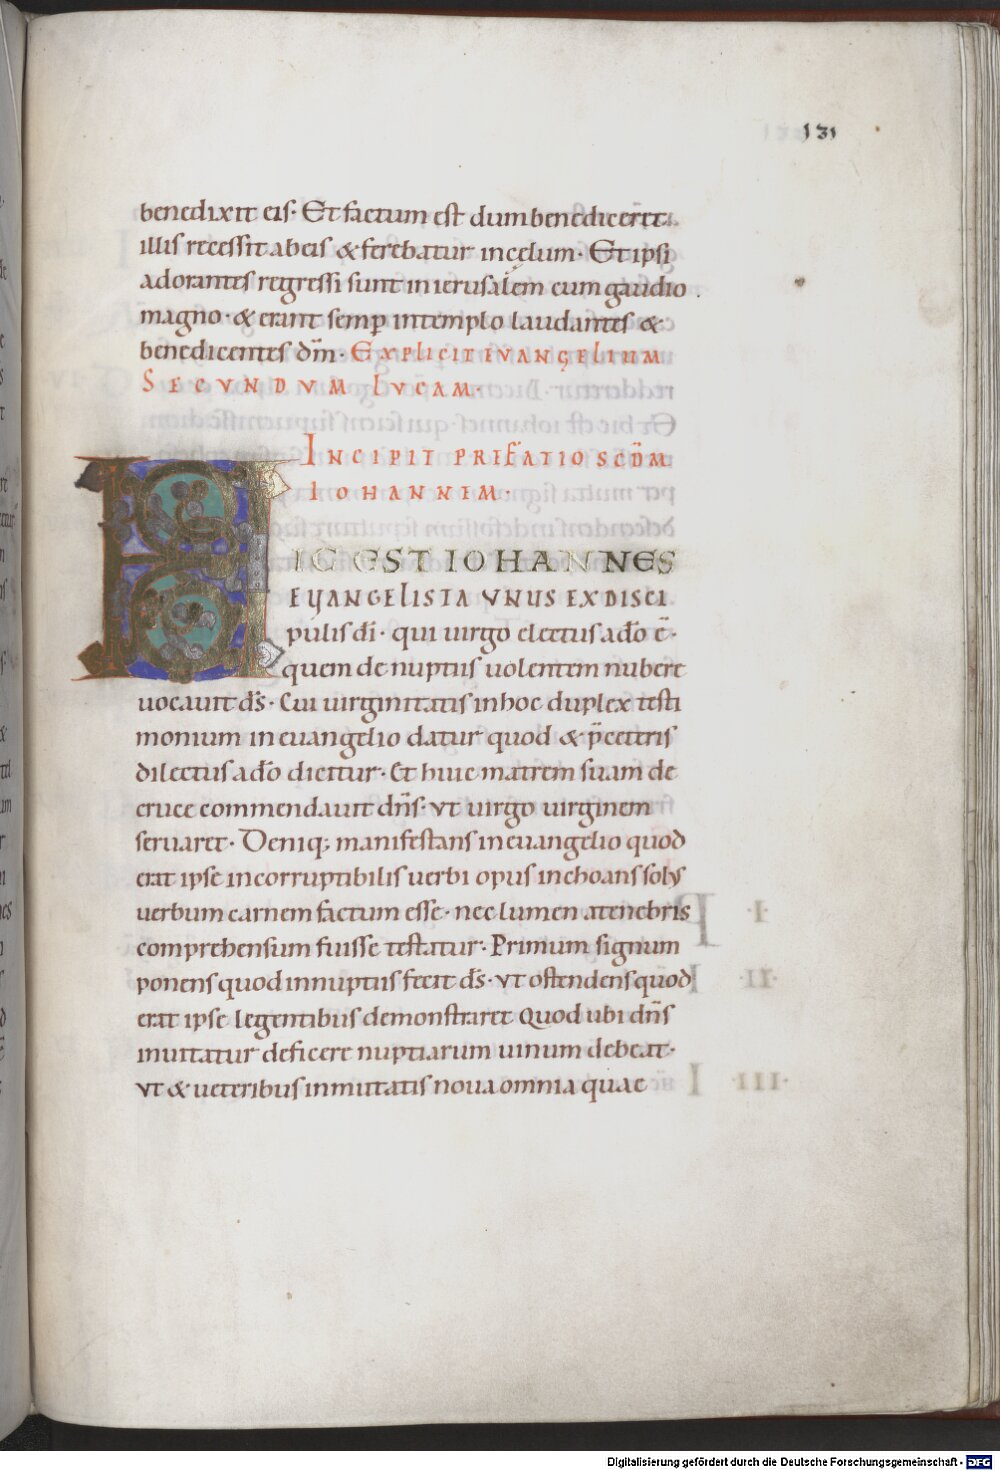 131
benedixit eis· Et factum est dum benediceret
illis recessit ab eis & ferebatur in cęlum· Et ipsi
adorantes regressi sunt in ierusalem cum gaudio
magno· & erant semp̲ in templo laudantes &
benedicentes dm̄· EXPLICIT EVANGELIUM
SECVNDVM LVCAM·
INCIPIT PREFATIO SCDM̄
IOHANNEM·
HIC EST IOHANNES
EVANGELISTA VNUS EX DISCI
pulis dī· qui uirgo electus a dō ē·
quem de nuptiis uolentem nubere
uocauit ds̄· Cui uirginitatis in hoc duplex testi
monium in euangelio datur quod & p̄ceteris
dilectus a dō dicitur· Et huic matrem suam de
cruce commendauit dn̄s· vt uirgo uirginem
seruaret· Deniq; manifestans in euangelio quod
erat ipse incorruptibilis uerbi opus inchoans solus
uerbum carnem factum esse· nec lumen a tenebris
comprehensum fuisse testatur· Primum signum
ponens quod in nuptiis fecit ds̄· vt ostendens quod
erat ipse legentibus demonstraret Quod ubi dn̄s
inuitatur deficere nuptiarum uinum debeat·
vt & ueteribus inmutatis noua omnia quae
Digitalisierung gefördert durch die Deutsche Forschungsgemeinschaft - DFG